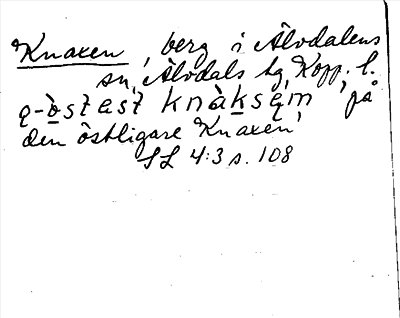 Knaxen, berg i Älvdalens
sn, Älvdals hg, Kopp. l.
knàksęm 'på
den östligare Knaxen'
SL 4:3 s. 108